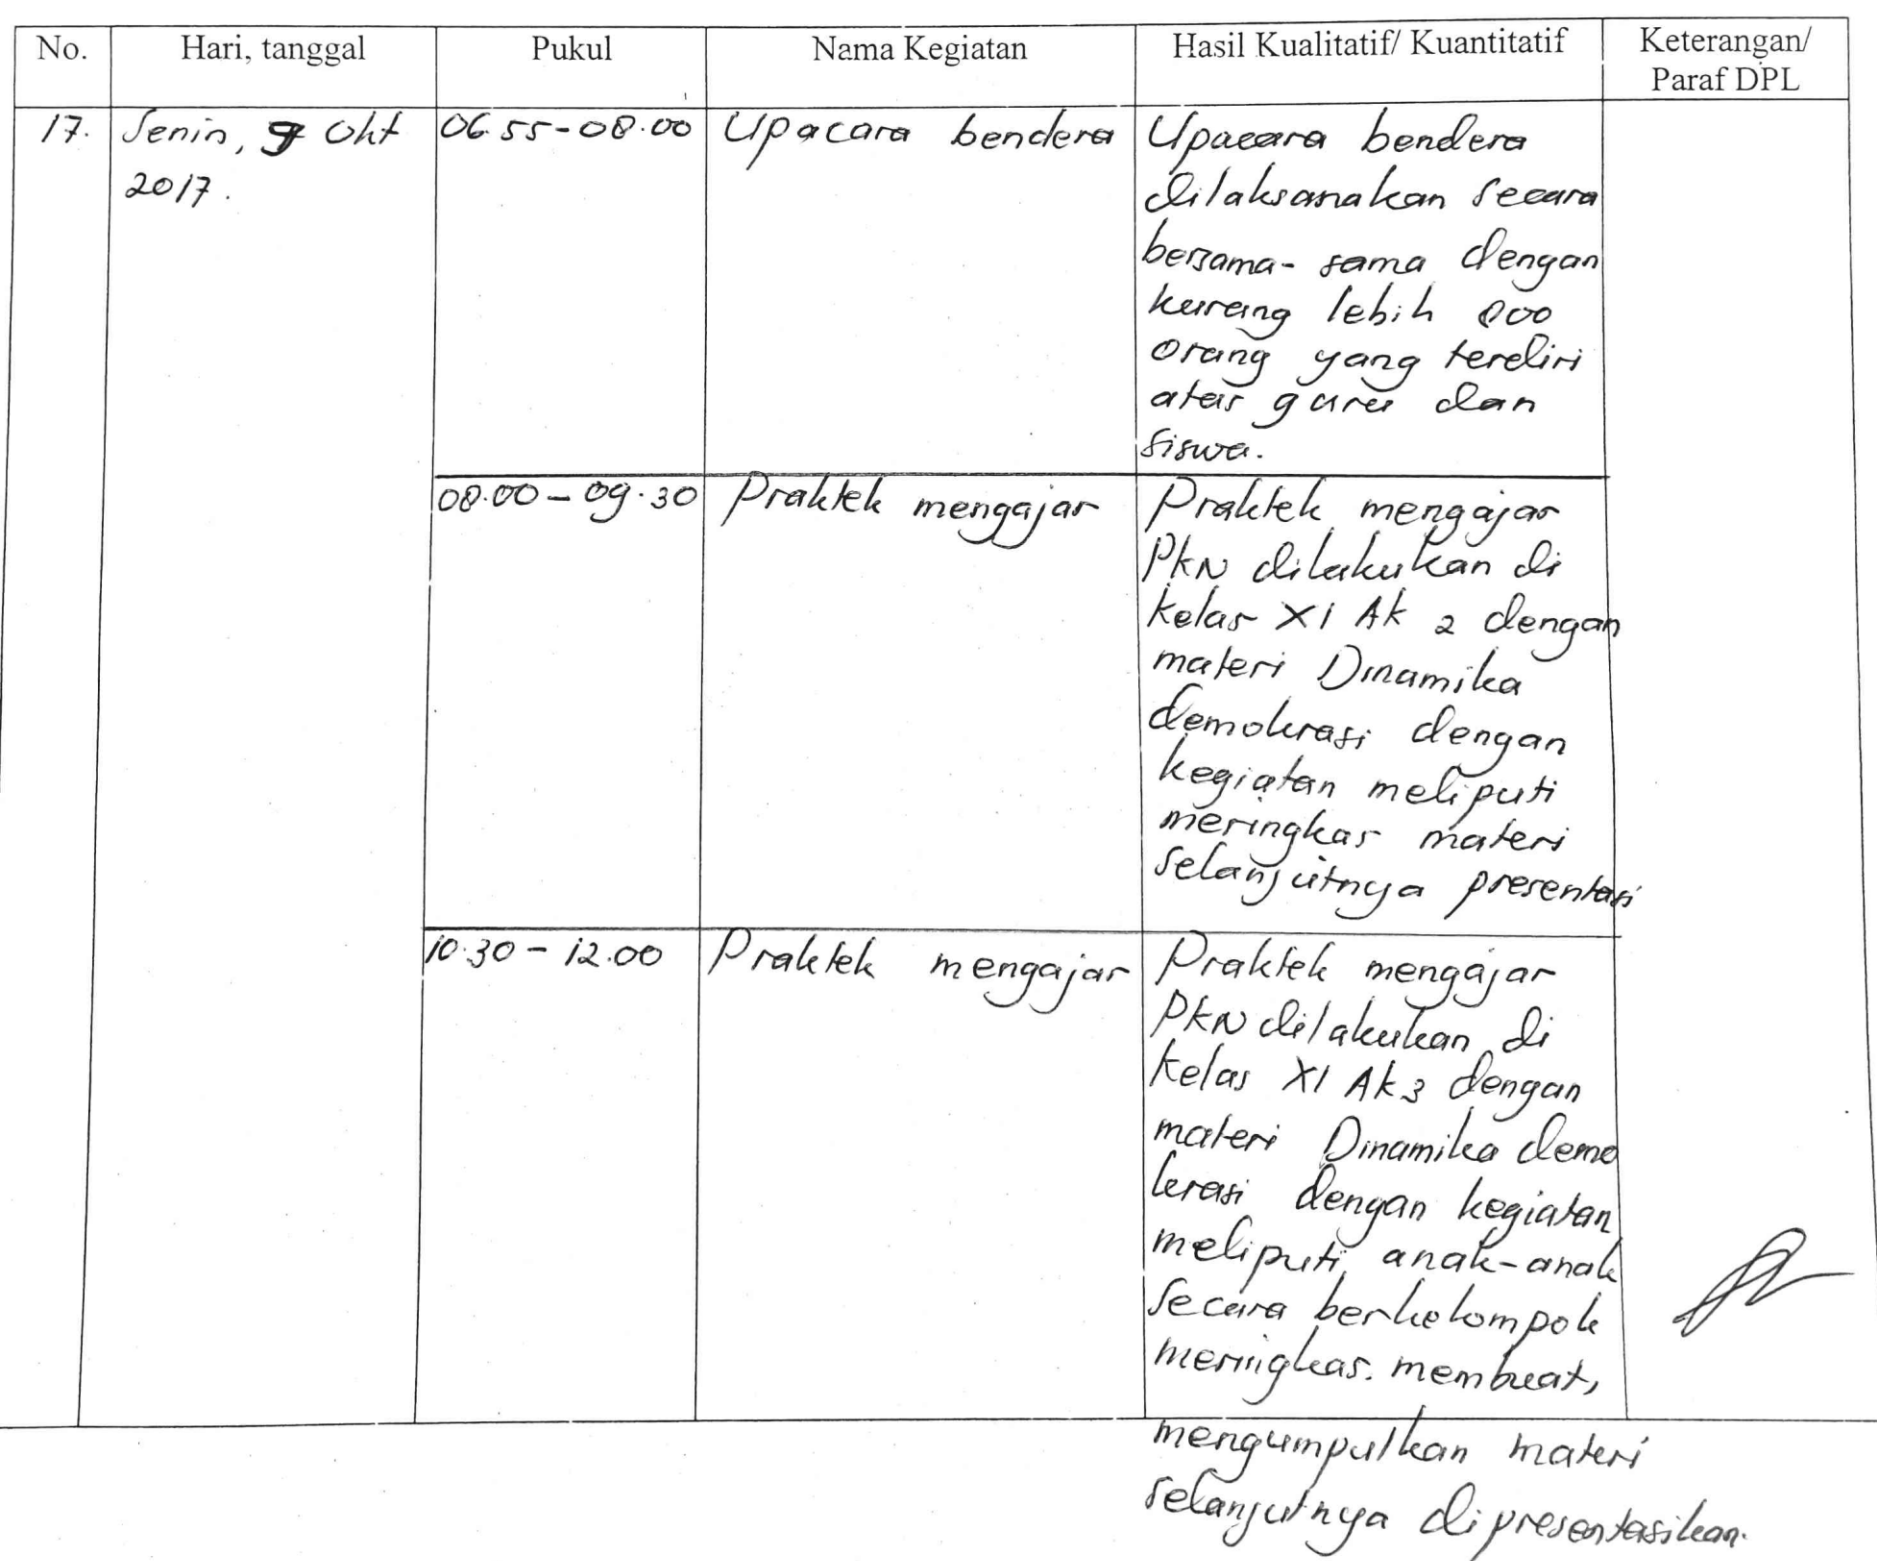 No. Hari, tanggal Pukul Nama Kegiatan Hasil Kualitatif/ Kuantitatif Keterangan/
Paraf DPL
17. Senin, 9 Okt 06.55-08.00 Upacara bendera Upacara bendera
2017. dilaksanakan secara
bersama-sama dengan
kurang lebih 800
orang yang terdiri
atas guru dan
siswa.
08.00-09.30 Praktek mengajar Praktek mengajar
PKN dilakukan di
kelas XI AK 2 dengan
materi Dinamika
demokrasi dengan
kegiatan meliputi
meringkas materi
selanjutnya presentasi
10.30-12.00 Praktek mengajar Praktek mengajar
PKN dilakukan di
kelas XI AK3 dengan
materi Dinamika demo
krasi dengan kegiatan
meliputi anak-anak
secara berkelompok
meringkas. membuat,
mengumpulkan materi
selanjutnya dipresentasikan.